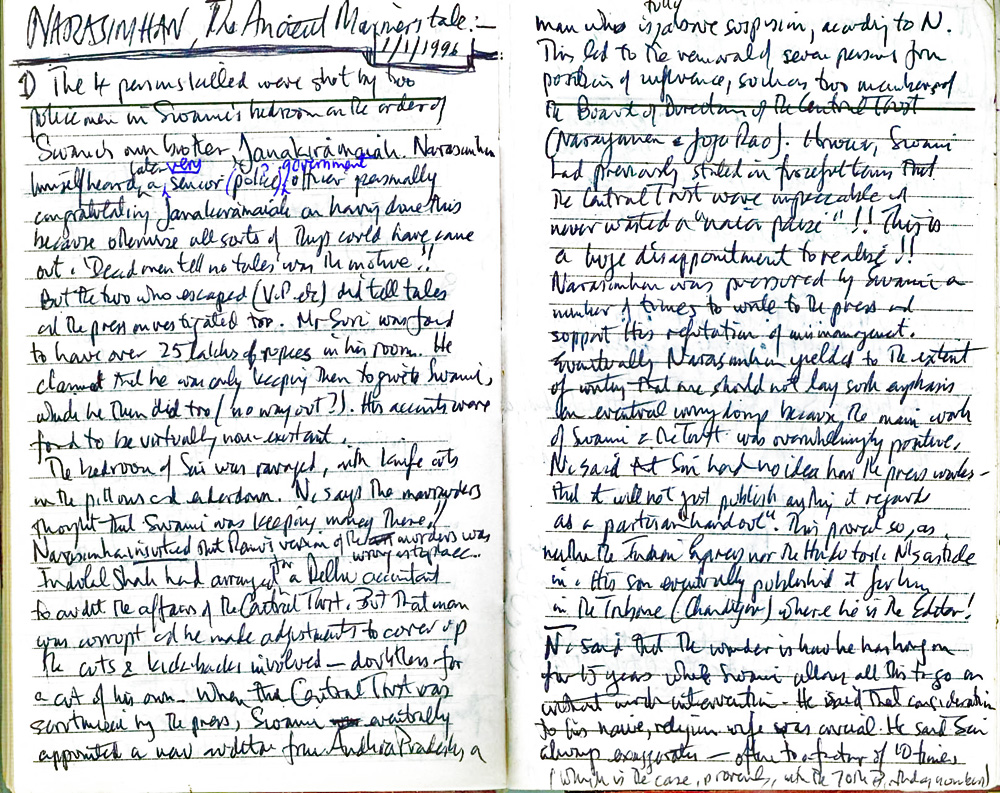 NARASIMHAN, The Ancient Mariner's tale:—
1/1/1996
1) The 4 persons killed were shot by two
policemen in Swami's bedroom on the order of
Swami's own brother, Janakiramaiah. Narasimhan
himself heard a later very senior (police) government officer personally
congratulating Janakiramaiah on having done this
because otherwise all sorts of things could have come
out. 'Dead men tell no tales' was the motive!!
But the two who escaped (V.P. etc) did tell tales
and the press investigated too. Mr Suri was found
to have over 25 lakhs of rupees in his room. He
claimed that he was only keeping them to give to Swami,
which he then did too (no way out?). His accounts were
found to be virtually non-existent.
The bedroom of Sai was ravaged, with knife cuts
in the pillows and eiderdown. N. says the marauders
thought that Swami was keeping money there!!
Narasimhan insisted that version of the murders was
wrong
Indulal Shah had arranged for a Delhi accountant
to audit the affairs of the Central Trust. But that man
was corrupt and he made adjustments to cover up
the cuts & kickbacks involved — doubtless for
a cut of his own. When the Central Trust was
scrutinised by the press, Swami eventually
appointed a new auditor from Andhra Pradesh, a
man who is fully above suspicion, according to N.
This led to the removal of seven persons from
positions of influence, such as two members of
the Board of Directors of the Central Trust
(Narayanan & Joga Rao). However, Swami
had previously stated in forceful terms that
the Central Trust were impeccable and
never wasted a "naia paise"!! This is
a huge disappointment to realise!!
Narasimhan was pressured by Swami a
number of times to write to the press and
support His refutation of mismanagement.
Eventually Narasimhan yielded to the extent
of writing that one should not lay such emphasis
on eventual wrong doings because the main work
of Swami & the Trust was overwhelmingly positive.
N. said that Sai had no idea how the press works –
that it will not just publish anything it regards
as a partisan handout". This proved so, as
neither the Indian Express nor the Hindu took N's article
in. His son eventually published it for him
in the Tribune (Chandigarh) where he is the Editor!
N. said that the wonder is how he has hung on
for 15 years while Swami allows all this to go on
without intervention. He said that consideration
to his naive, religious wife was crucial. He said Sai
always exaggerates — often to a factor of 10 times
(Which is the case, with the 70th